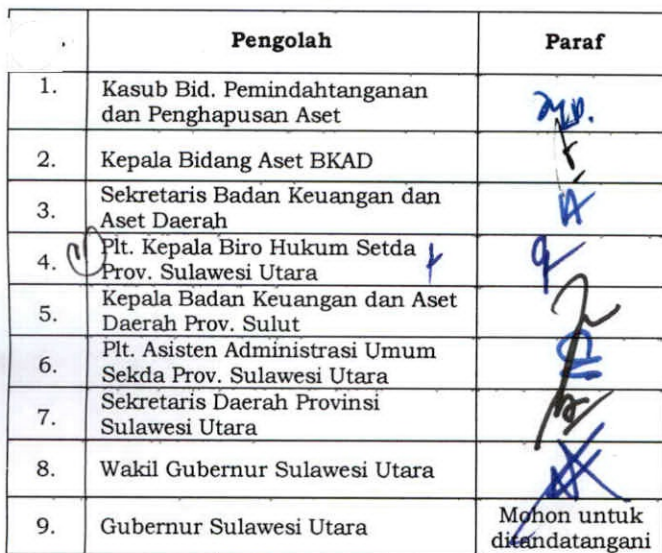 Pengolah Paraf
1. Kasub Bid. Pemindahtanganan
dan Penghapusan Aset
2. Kepala Bidang Aset BKAD
3. Sekretaris Badan Keuangan dan
Aset Daerah
4. Plt. Kepala Biro Hukum Setda
Prov. Sulawesi Utara
5. Kepala Badan Keuangan dan Aset
Daerah Prov. Sulut
6. Plt. Asisten Administrasi Umum
Sekda Prov. Sulawesi Utara
7. Sekretaris Daerah Provinsi
Sulawesi Utara
8. Wakil Gubernur Sulawesi Utara
9. Gubernur Sulawesi Utara Mohon untuk
ditandatangani